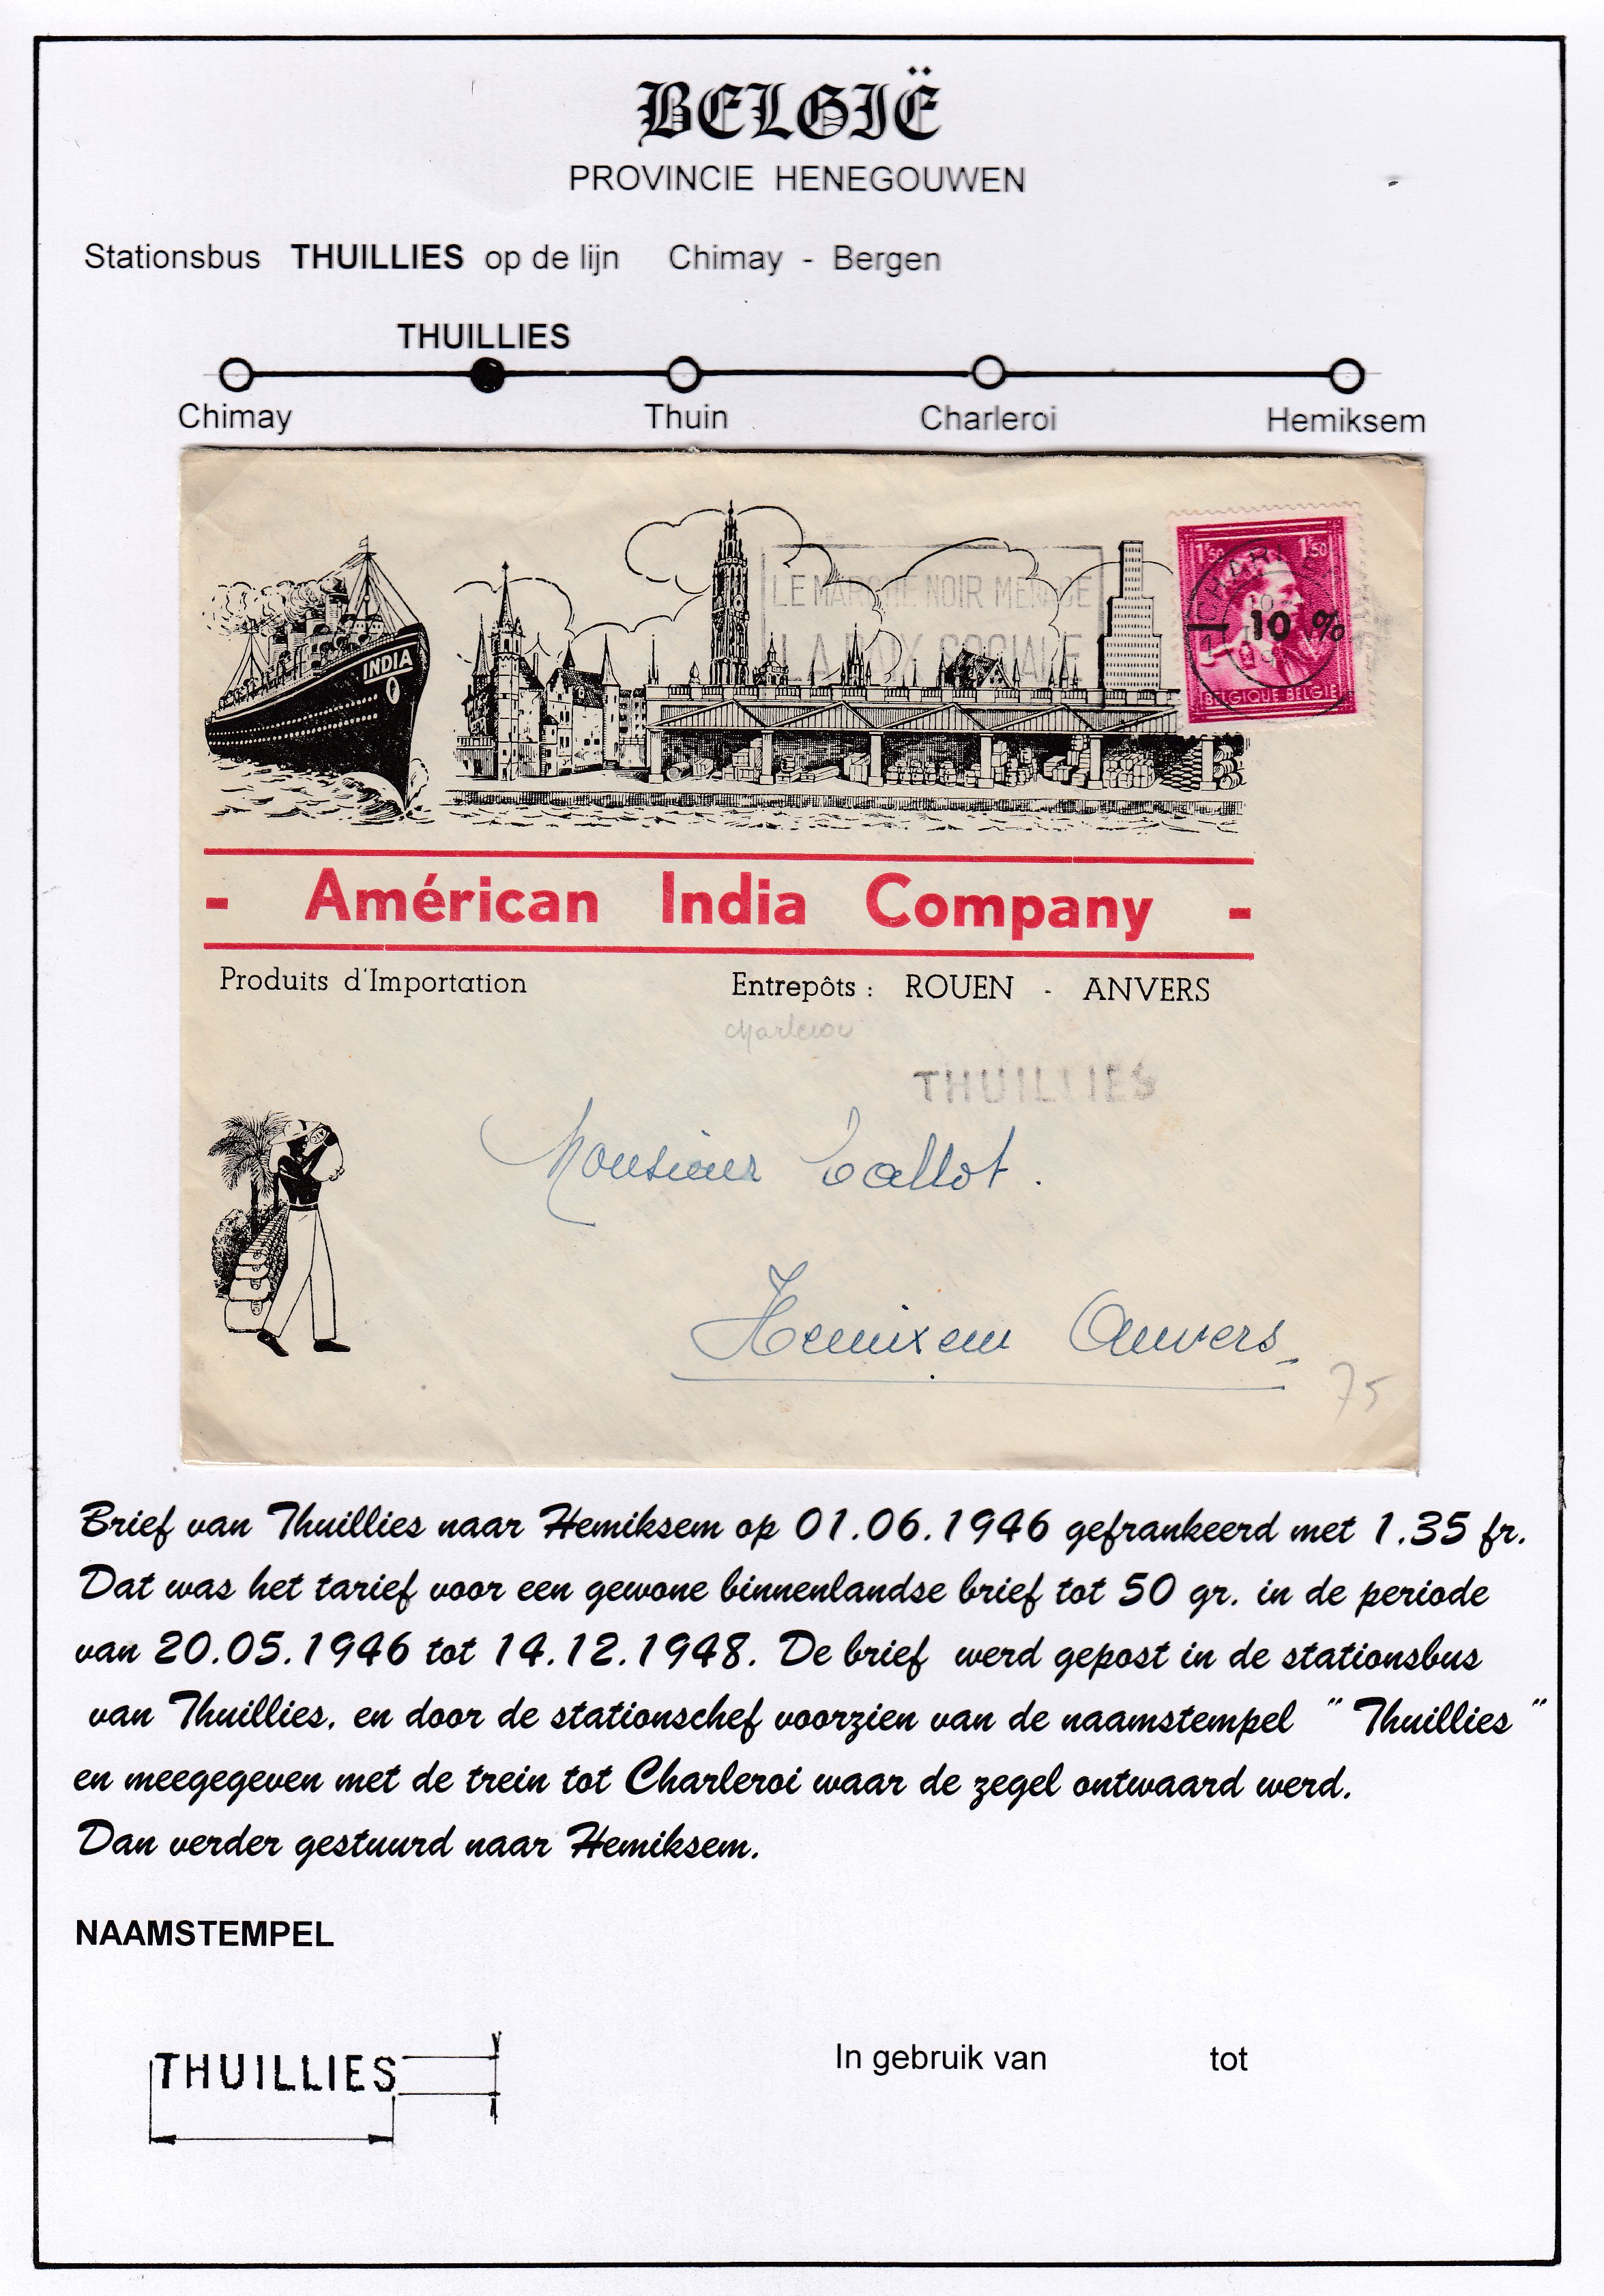 BELGIË
PROVINCIE HENEGOUWEN
Stationsbus THUILLIES op de lijn Chimay - Bergen
THUILLIES
Chimay Thuin Charleroi Hemiksem
INDIA
LE MARCHE NOIR MENACE
LA PAIX SOCIALE
1F50 1F50
CHARL
-10 %
BELGIQUE BELGIË
- Américan India Company -
Produits d'Importation Entrepôts : ROUEN - ANVERS
Charleroi
THUILLIES
Monsieur Callot.
Hemixem Anvers
75
Brief van Thuillies naar Hemiksem op 01.06.1946 gefrankeerd met 1.35 fr.
Dat was het tarief voor een gewone binnenlandse brief tot 50 gr. in de periode
van 20.05.1946 tot 14.12.1948. De brief werd gepost in de stationsbus
van Thuillies, en door de stationschef voorzien van de naamstempel " Thuillies "
en meegegeven met de trein tot Charleroi waar de zegel ontwaard werd.
Dan verder gestuurd naar Hemiksem.
NAAMSTEMPEL
THUILLIES
In gebruik van tot